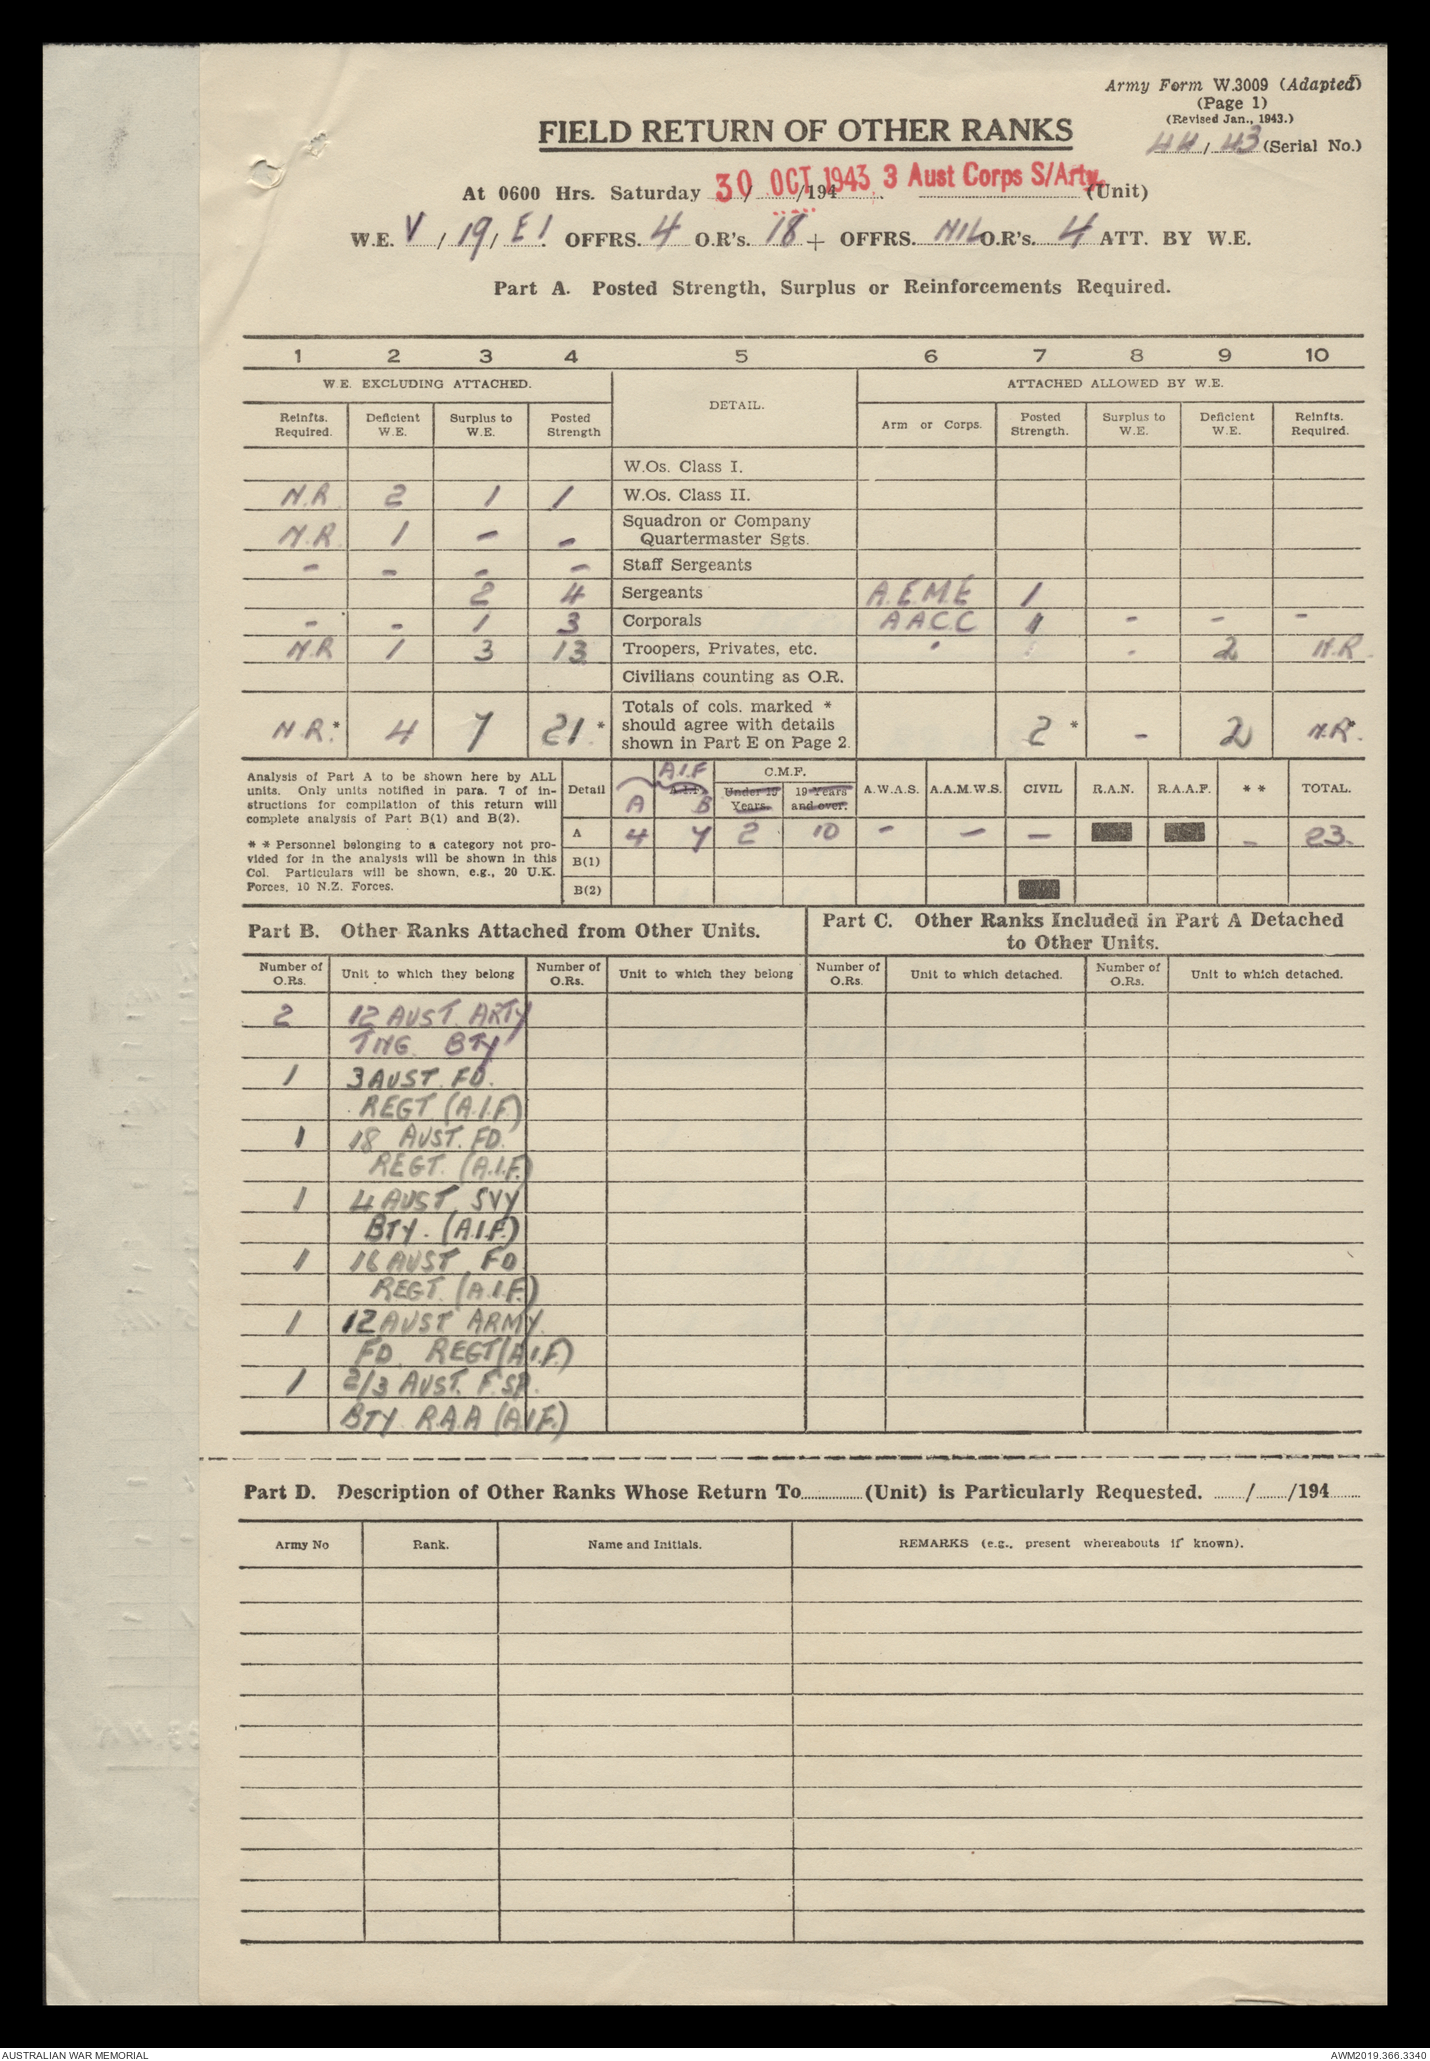 Army Form W.3009 (Adapted)
(Page 1)
(Revised Jan., 1943.)
44/43 (Serial No.)
FIELD RETURN OF OTHER RANKS
At 0600 Hrs. Saturday 30 OCT 1943 /194 3 Aust Corps S/Arty. (Unit)
W.E. V / 19 / E1. OFFRS. 4 O.R's. 18 + OFFRS. NIL O.R's. 4 ATT. BY W.E.
Part A. Posted Strength, Surplus or Reinforcements Required.
1 2 3 4 5 6 7 8 9 10
W.E. EXCLUDING ATTACHED. DETAIL. ATTACHED ALLOWED BY W.E.
Reinfts. Required. Deficient W.E. Surplus to W.E. Posted Strength Arm or Corps. Posted Strength. Surplus to W.E. Deficient W.E. Reinfts. Required.
W.Os. Class I.
N.R 2 1 1 W.Os. Class II.
N.R. 1 - - Squadron or Company
Quartermaster Sgts.
- - - - Staff Sergeants
2 4 Sergeants A.E.M.E 1
- - 1 3 Corporals A A C C 1 - - -
N.R 1 3 13 Troopers, Privates, etc. 2 N.R.
Civilians counting as O.R.
Totals of cols. marked *
should agree with details
shown in Part E on Page 2.
N.R.* 4 7 21 * 2 * - 2 N.R*.
Analysis of Part A to be shown here by ALL
units. Only units notified in para. 7 of in-
structions for compilation of this return will
complete analysis of Part B(1) and B(2).
* * Personnel belonging to a category not pro-
vided for in the analysis will be shown in this
Col. Particulars will be shown, e.g., 20 U.K.
Forces, 10 N.Z. Forces.
Detail A.I.F A.I.F. A B C.M.F. Under 19 Years. 19 Years and over. A.W.A.S. A.A.M.W.S. CIVIL R.A.N. R.A.A.F. * * TOTAL.
A 4 7 2 10 - - - - 23.
B(1)
B(2)
Part B. Other Ranks Attached from Other Units.
Part C. Other Ranks Included in Part A Detached
to Other Units.
Number of O.Rs. Unit to which they belong Number of O.Rs. Unit to which they belong Number of O.Rs. Unit to which detached. Number of O.Rs. Unit to which detached.
2 12 AUST. ARTY
TNG. BTY
1 3 AUST. FD.
REGT (A.I.F.)
1 18 AUST. FD.
REGT. (A.I.F.)
1 4 AUST. SVY
BTY. (A.I.F.)
1 16 AUST FD
REGT. (A.I.F.)
1 12 AUST ARMY
FD. REGT (A.I.F.)
1 2/3 AUST. F. SP.
BTY. R.A.A (A.I.F.)
Part D. Description of Other Ranks Whose Return To (Unit) is Particularly Requested. / /194
Army No Rank. Name and Initials. REMARKS (e.g., present whereabouts if known).
AUSTRALIAN WAR MEMORIAL AWM2019.366.3340